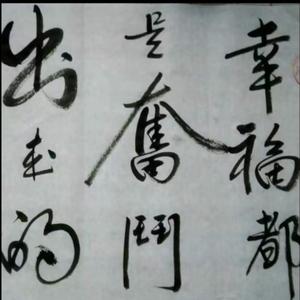 幸福都
是奮鬥
出来的